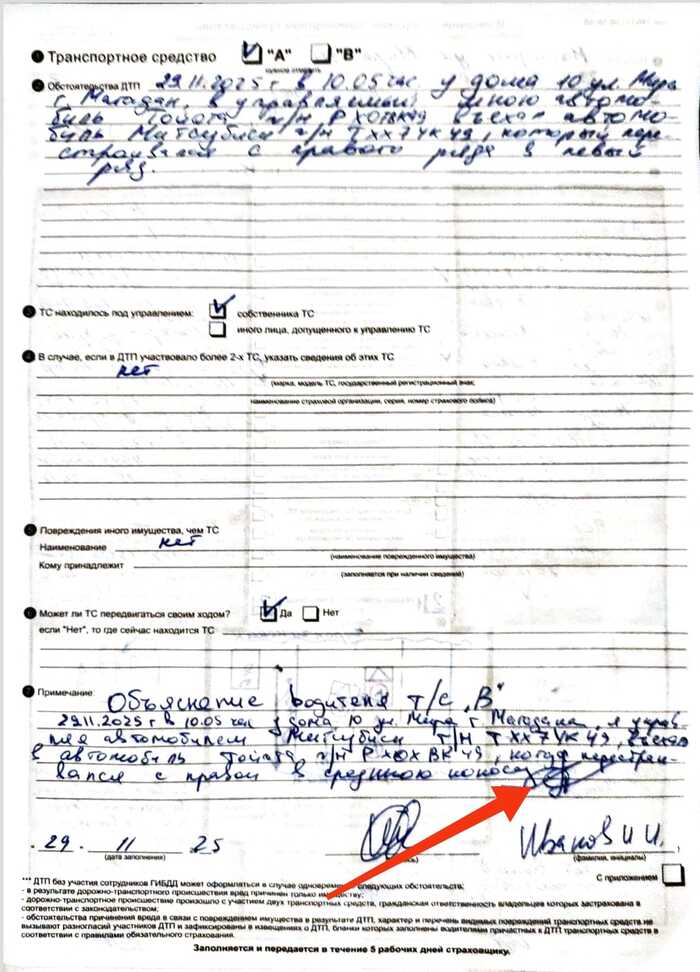 1 Транспортное средство ☑ "А" ☐ "В"
2 Обстоятельства ДТП 29.11.2025 г в 10.05 час у дома 10 ул. Мира
г. Магадан, в управляемый мною автомо-
биль Тойота г/н въехал автомо-
биль Митсубиси г/н ТХХ7УК49, который пере-
страивался с правого ряда в левый
ряд.
3 ТС находилось под управлением: ☑ собственника ТС
☐ иного лица, допущенного к управлению ТС
4 В случае, если в ДТП участвовало более 2-х ТС, указать сведения об этих ТС
нет
(марка, модель ТС, государственный регистрационный знак,
наименование страховой организации, серия, номер страхового полиса)
5 Повреждения иного имущества, чем ТС
Наименование нет
(наименование поврежденного имущества)
Кому принадлежит
(заполняется при наличии сведений)
6 Может ли ТС передвигаться своим ходом? ☑ Да ☐ Нет
если "Нет", то где сейчас находится ТС
7 Примечание: Объяснение водителя т/с "В"
29.11.2025 г в 10.05 час у дома 10 ул. Мира г. Магадана, я управ-
ляя автомобилем Митсубиси г/н ТХХ7УК49, въехал
в автомобиль Тойота г/н РХОХВК49, когда перестраи-
вался с правой в среднюю полосу
29 11 25 Иванов И И.
(дата заполнения) (фамилия, инициалы)
С приложением ☐
*** ДТП без участия сотрудников ГИБДД может оформляться в случае следующих обстоятельств:
- в результате дорожно-транспортного происшествия вред причинен только имуществу;
- дорожно-транспортное происшествие произошло с участием двух транспортных средств, гражданская ответственность владельцев которых застрахована в
соответствии с законодательством;
- обстоятельства причинения вреда в связи с повреждением имущества в результате ДТП, характер и перечень видимых повреждений транспортных средств не
вызывают разногласий участников ДТП и зафиксированы в извещениях о ДТП, бланки которых заполнены водителями причастных к ДТП транспортных средств в
соответствии с правилами обязательного страхования.
Заполняется и передается в течение 5 рабочих дней страховщику.